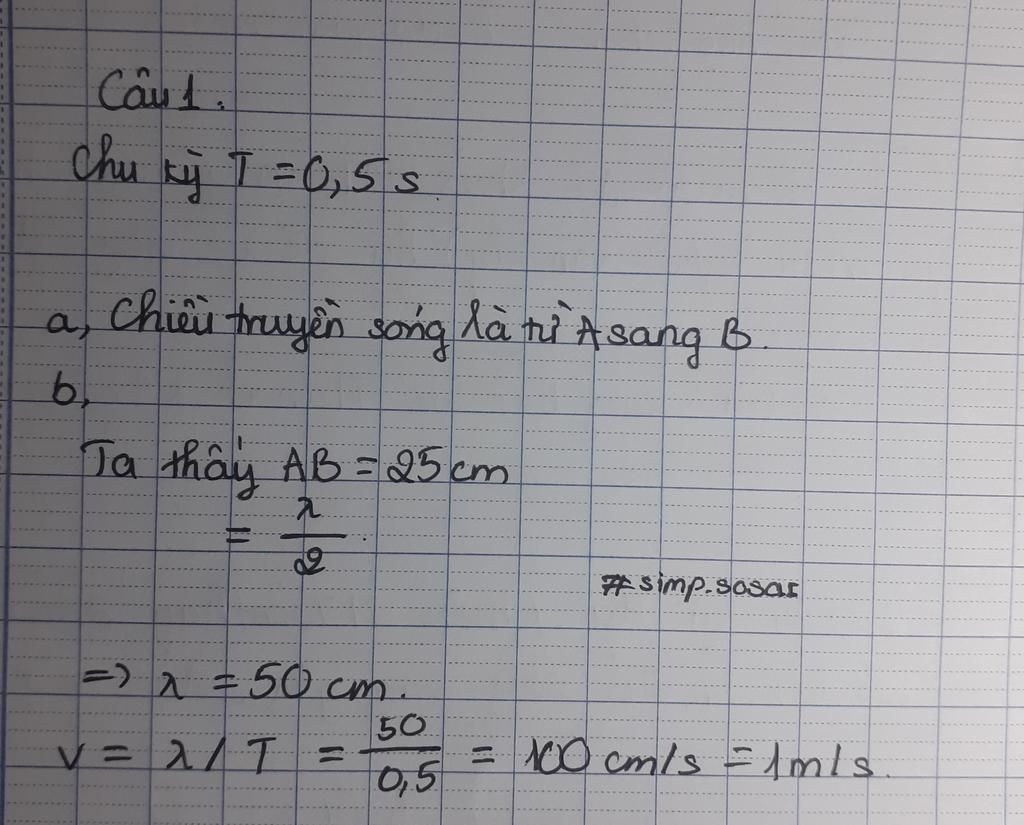 Câu 1.
Chu kỳ T = 0,5 s.
a, Chiều truyền sóng là từ A sang B.
b,
Ta thấy AB = 25 cm
= λ/2.
#simp.sosas
=> λ = 50 cm.
v = λ / T = 50/0,5 = 100 cm/s = 1m/s.